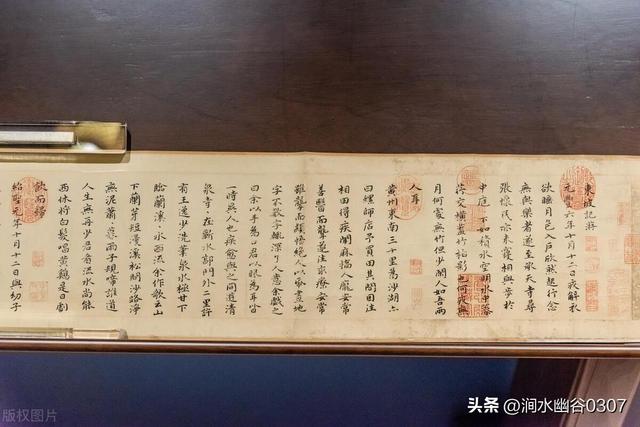 東坡記遊
元豐六年十月十二日夜解衣
欲睡月色入戶欣然起行念
無與樂者遂至承天寺尋
張懷民亦未寢相與步於
中庭下如積水空明水中藻
荇交橫蓋竹柏影也何夜無
月何處無竹但少閑人如吾兩
人耳
黃州東南三十里為沙湖亦
曰螺師店予買田其間因往
相田得疾聞麻橋人龐安常
善醫而聾遂往求療安常
雖聾而穎悟絕人以紙畫地
字不數字輒深了人意余戲之
曰余以手為口君以眼為耳皆
一時異人也疾愈與之同遊清
泉寺在蘄水郭門外二里許
有王逸少洗筆泉水極甘下
臨蘭溪水西流余作歌云山
下蘭芽短浸溪松間沙路淨
無泥蕭蕭暮雨子規啼誰道
人生無再少君看流水尚能
西休將白髮唱黃雞是日劇
飲而歸
紹聖元年十月十二日與幼子
版权图片
头条 @涧水幽谷0307